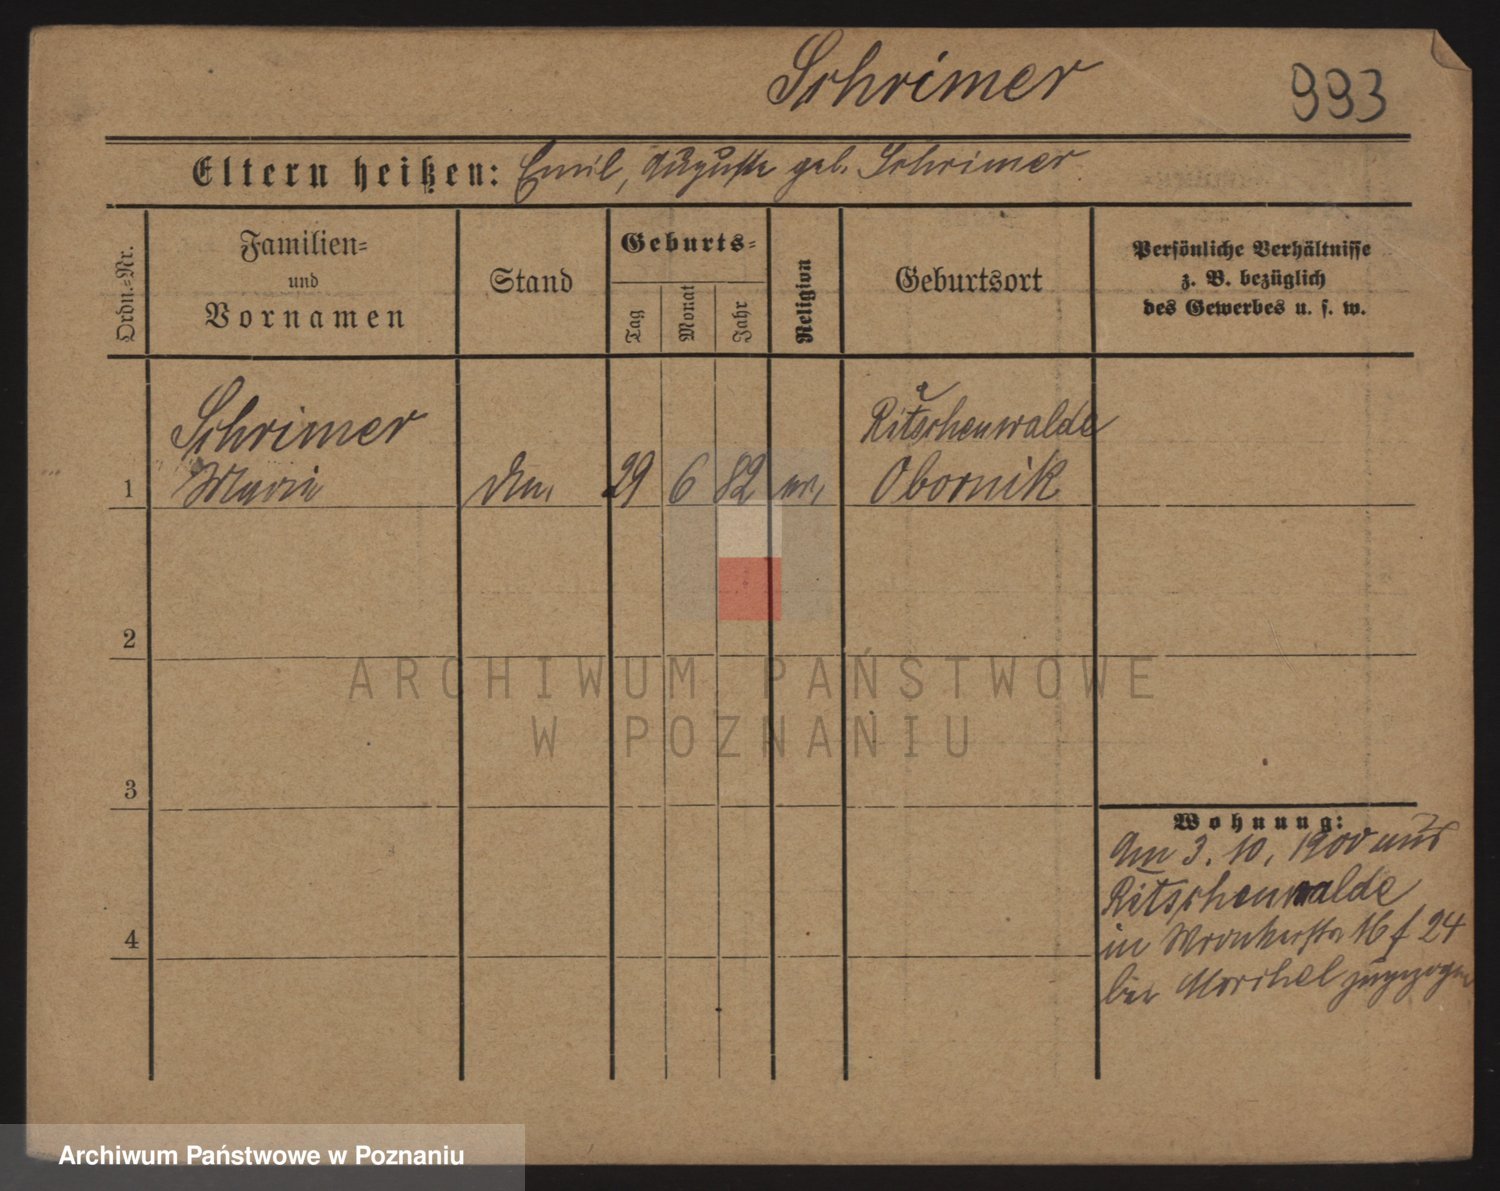 Schrimer 993
Eltern heißen: Emil, Auguste geb. Schrimer
Ordn.=Nr.
Familien=
und
Vornamen
Stand
Geburts=
Tag
Monat
Jahr
Religion
Geburtsort
Persönliche Verhältnisse
z. B. bezüglich
des Gewerbes u. s. w.
Schrimer
Ritschenwalde
1 Marie 29 6 82 Obornik
2
3
4
ARCHIWUM PAŃSTWOWE
W POZNANIU
Wohnung:
Am 3. 10. 1900 aus
Ritschenwalde
in Wronkerstr 16 f 24
bei zugezogen
Archiwum Państwowe w Poznaniu